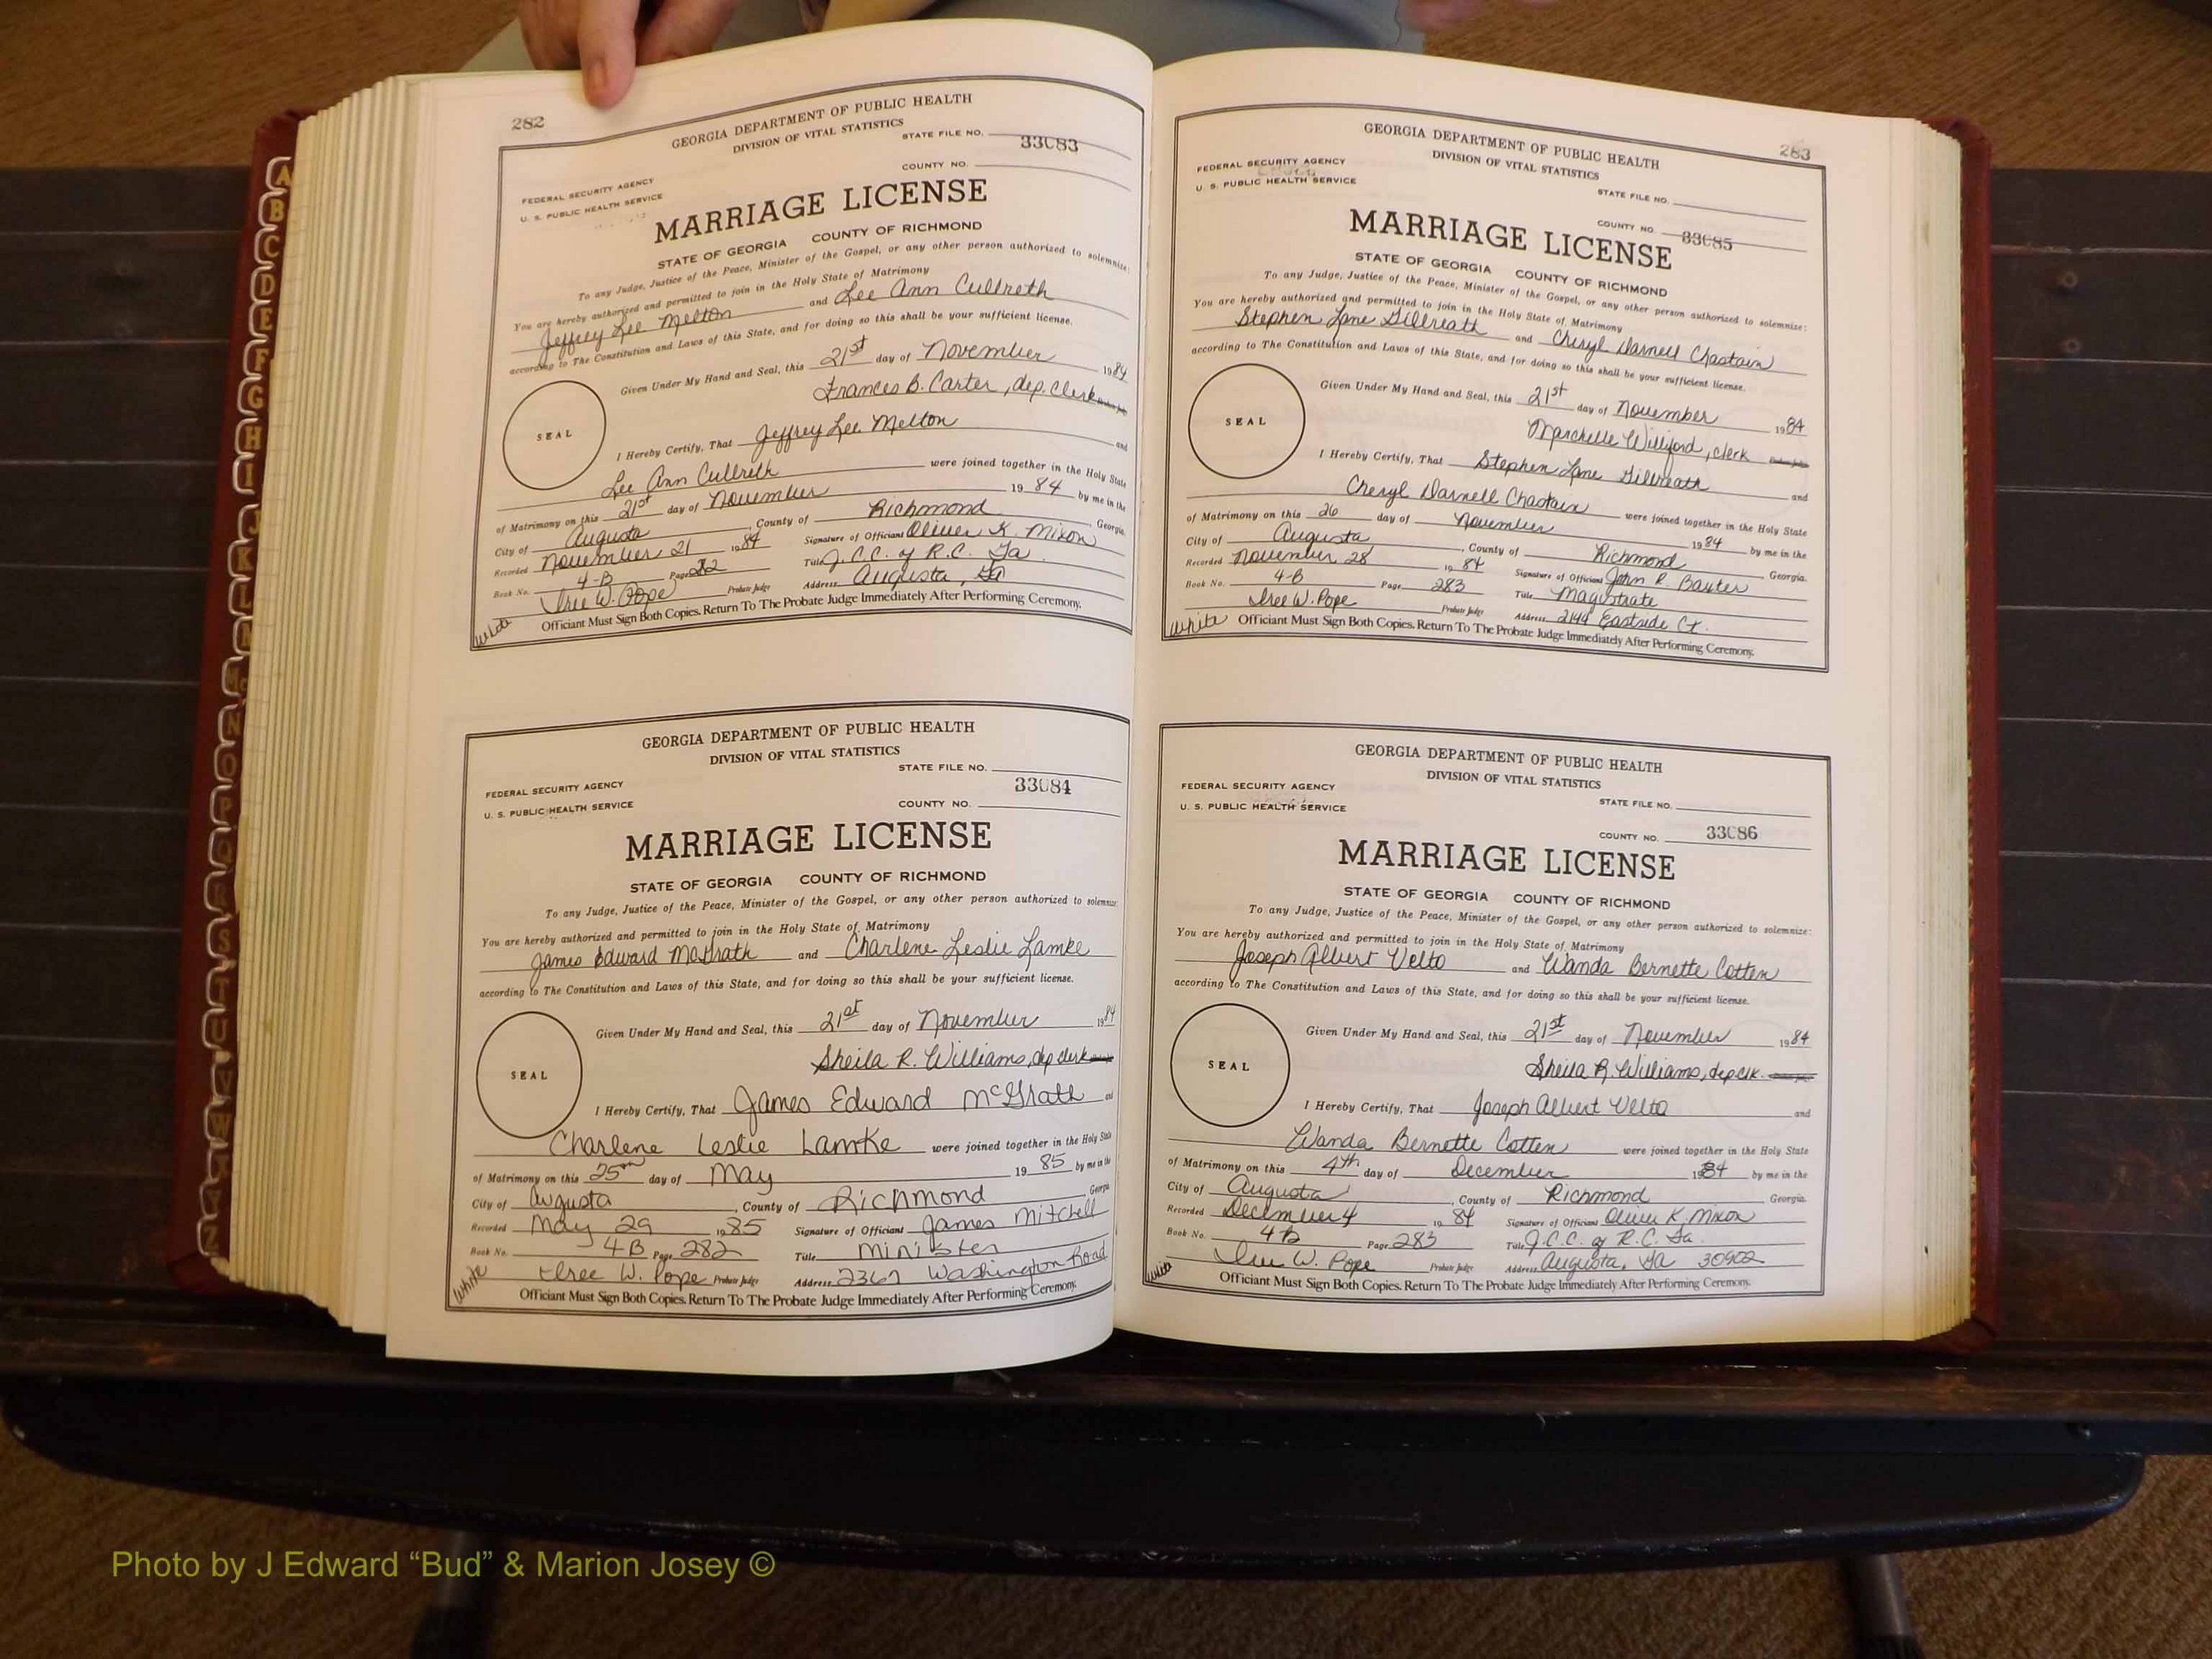 A
B
C
D
E
F
G
H
I
J
K
L
M
Mc
N
O
P
Q
R
S
T
U
V
W
Y
Z
282
GEORGIA DEPARTMENT OF PUBLIC HEALTH
DIVISION OF VITAL STATISTICS
STATE FILE NO. 33083
COUNTY NO.
FEDERAL SECURITY AGENCY
U. S. PUBLIC HEALTH SERVICE
MARRIAGE LICENSE
STATE OF GEORGIA COUNTY OF RICHMOND
To any Judge, Justice of the Peace, Minister of the Gospel, or any other person authorized to solemnize:
You are hereby authorized and permitted to join in the Holy State of Matrimony
Jeffrey Lee Melton and Lee Ann Cullreth
according to The Constitution and Laws of this State, and for doing so this shall be your sufficient license.
Given Under My Hand and Seal, this 21st day of November 1984
Frances B. Carter, dep. clerk
SEAL
I Hereby Certify, That Jeffrey Lee Melton and
Lee Ann Cullreth were joined together in the Holy State
of Matrimony on this 21st day of November 1984 by me in the
City of Augusta, County of Richmond Georgia.
Recorded November 21 1984 Signature of Officiant Oliver K. Mixon
Book No. 4-B Page 282 Title J.C.C. of R.C. Ga
Iree W. Pope Probate Judge Address Augusta, Ga
White Officiant Must Sign Both Copies. Return To The Probate Judge Immediately After Performing Ceremony.
GEORGIA DEPARTMENT OF PUBLIC HEALTH
DIVISION OF VITAL STATISTICS
STATE FILE NO.
33084
FEDERAL SECURITY AGENCY
U. S. PUBLIC HEALTH SERVICE
COUNTY NO.
MARRIAGE LICENSE
STATE OF GEORGIA COUNTY OF RICHMOND
To any Judge, Justice of the Peace, Minister of the Gospel, or any other person authorized to solemnize:
You are hereby authorized and permitted to join in the Holy State of Matrimony
James Edward McGrath and Charlene Leslie Lamke
according to The Constitution and Laws of this State, and for doing so this shall be your sufficient license.
Given Under My Hand and Seal, this 21st day of November 1984
Sheila R. Williams, dep clerk
SEAL
I Hereby Certify, That James Edward McGrath and
Charlene Leslie Lamke were joined together in the Holy State
of Matrimony on this 25th day of May 1985 by me in the
City of Augusta, County of Richmond Georgia
Recorded May 29 1985 Signature of Officiant James Mitchell
Book No. 4B Page 282 Title Minister
Iree W. Pope Probate Judge Address 2367 Washington Road
White Officiant Must Sign Both Copies. Return To The Probate Judge Immediately After Performing Ceremony.
283
GEORGIA DEPARTMENT OF PUBLIC HEALTH
DIVISION OF VITAL STATISTICS
FEDERAL SECURITY AGENCY
U. S. PUBLIC HEALTH SERVICE
STATE FILE NO.
COUNTY NO. 33085
MARRIAGE LICENSE
STATE OF GEORGIA COUNTY OF RICHMOND
To any Judge, Justice of the Peace, Minister of the Gospel, or any other person authorized to solemnize:
You are hereby authorized and permitted to join in the Holy State of Matrimony
Stephen Lane Gillreath and Cheryl Darnell Chastain
according to The Constitution and Laws of this State, and for doing so this shall be your sufficient license.
Given Under My Hand and Seal, this 21st day of November 1984
Marchelle Williford, clerk
SEAL
I Hereby Certify, That Stephen Lane Gillreath and
Cheryl Darnell Chastain were joined together in the Holy State
of Matrimony on this 26 day of November 1984 by me in the
City of Augusta, County of Richmond Georgia.
Recorded November 28 1984 Signature of Officiant John R. Baxter
Book No. 4-B Page 283 Title Magistrate
Iree W. Pope Probate Judge Address 2144 Eastside Ct.
White Officiant Must Sign Both Copies. Return To The Probate Judge Immediately After Performing Ceremony.
GEORGIA DEPARTMENT OF PUBLIC HEALTH
DIVISION OF VITAL STATISTICS
FEDERAL SECURITY AGENCY
U. S. PUBLIC HEALTH SERVICE
STATE FILE NO.
COUNTY NO. 33086
MARRIAGE LICENSE
STATE OF GEORGIA COUNTY OF RICHMOND
To any Judge, Justice of the Peace, Minister of the Gospel, or any other person authorized to solemnize:
You are hereby authorized and permitted to join in the Holy State of Matrimony
Joseph Albert Velto and Wanda Bernette Cotten
according to The Constitution and Laws of this State, and for doing so this shall be your sufficient license.
Given Under My Hand and Seal, this 21st day of November 1984
Sheila R. Williams, dep clk.
SEAL
I Hereby Certify, That Joseph Albert Velto and
Wanda Bernette Cotten were joined together in the Holy State
of Matrimony on this 4th day of December 1984 by me in the
City of Augusta, County of Richmond Georgia.
Recorded December 4 1984 Signature of Officiant Oliver K. Mixon
Book No. 4B Page 283 Title J.C.C. of R.C. Ga.
Iree W. Pope Probate Judge Address Augusta, Ga 30902
White Officiant Must Sign Both Copies. Return To The Probate Judge Immediately After Performing Ceremony.
Photo by J Edward “Bud” & Marion Josey ©